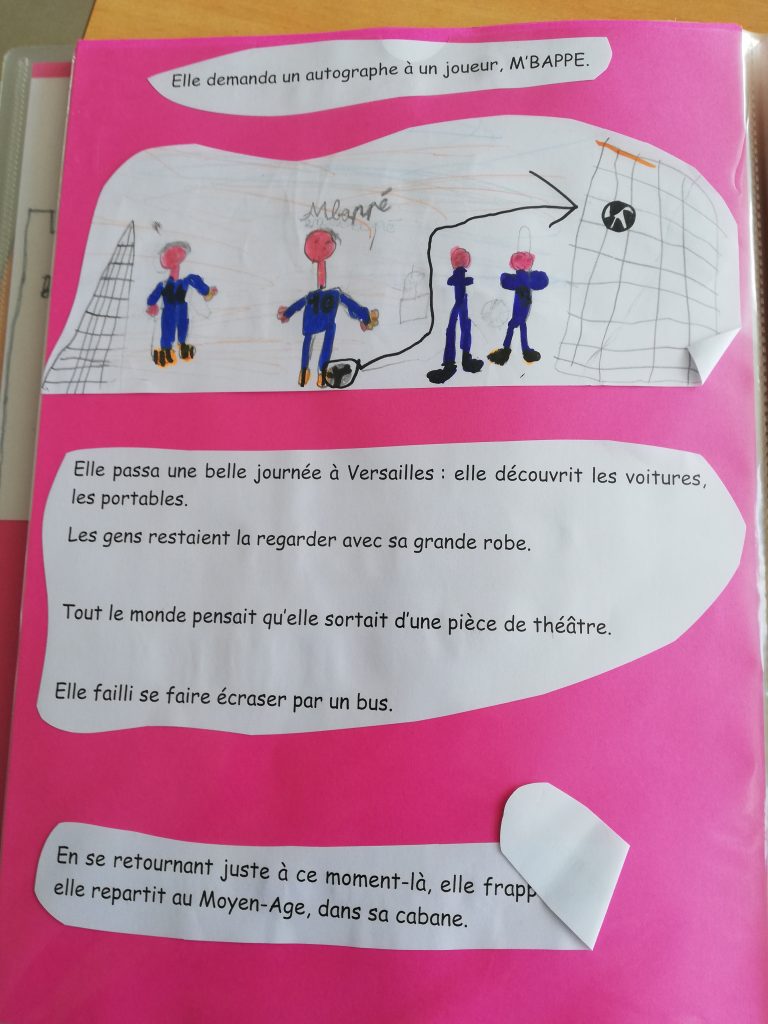 Elle demanda un autographe à un joueur, M'BAPPE.
Mbappé
10
10
Elle passa une belle journée à Versailles : elle découvrit les voitures,
les portables.
Les gens restaient la regarder avec sa grande robe.
Tout le monde pensait qu'elle sortait d'une pièce de théâtre.
Elle failli se faire écraser par un bus.
En se retournant juste à ce moment-là, elle frapp
elle repartit au Moyen-Age, dans sa cabane.